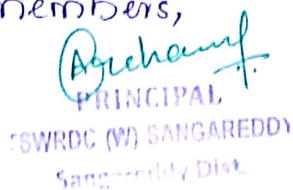 members,
PRINCIPAL
TSWRDC (W) SANGAREDDY
Sangareddy Dist.